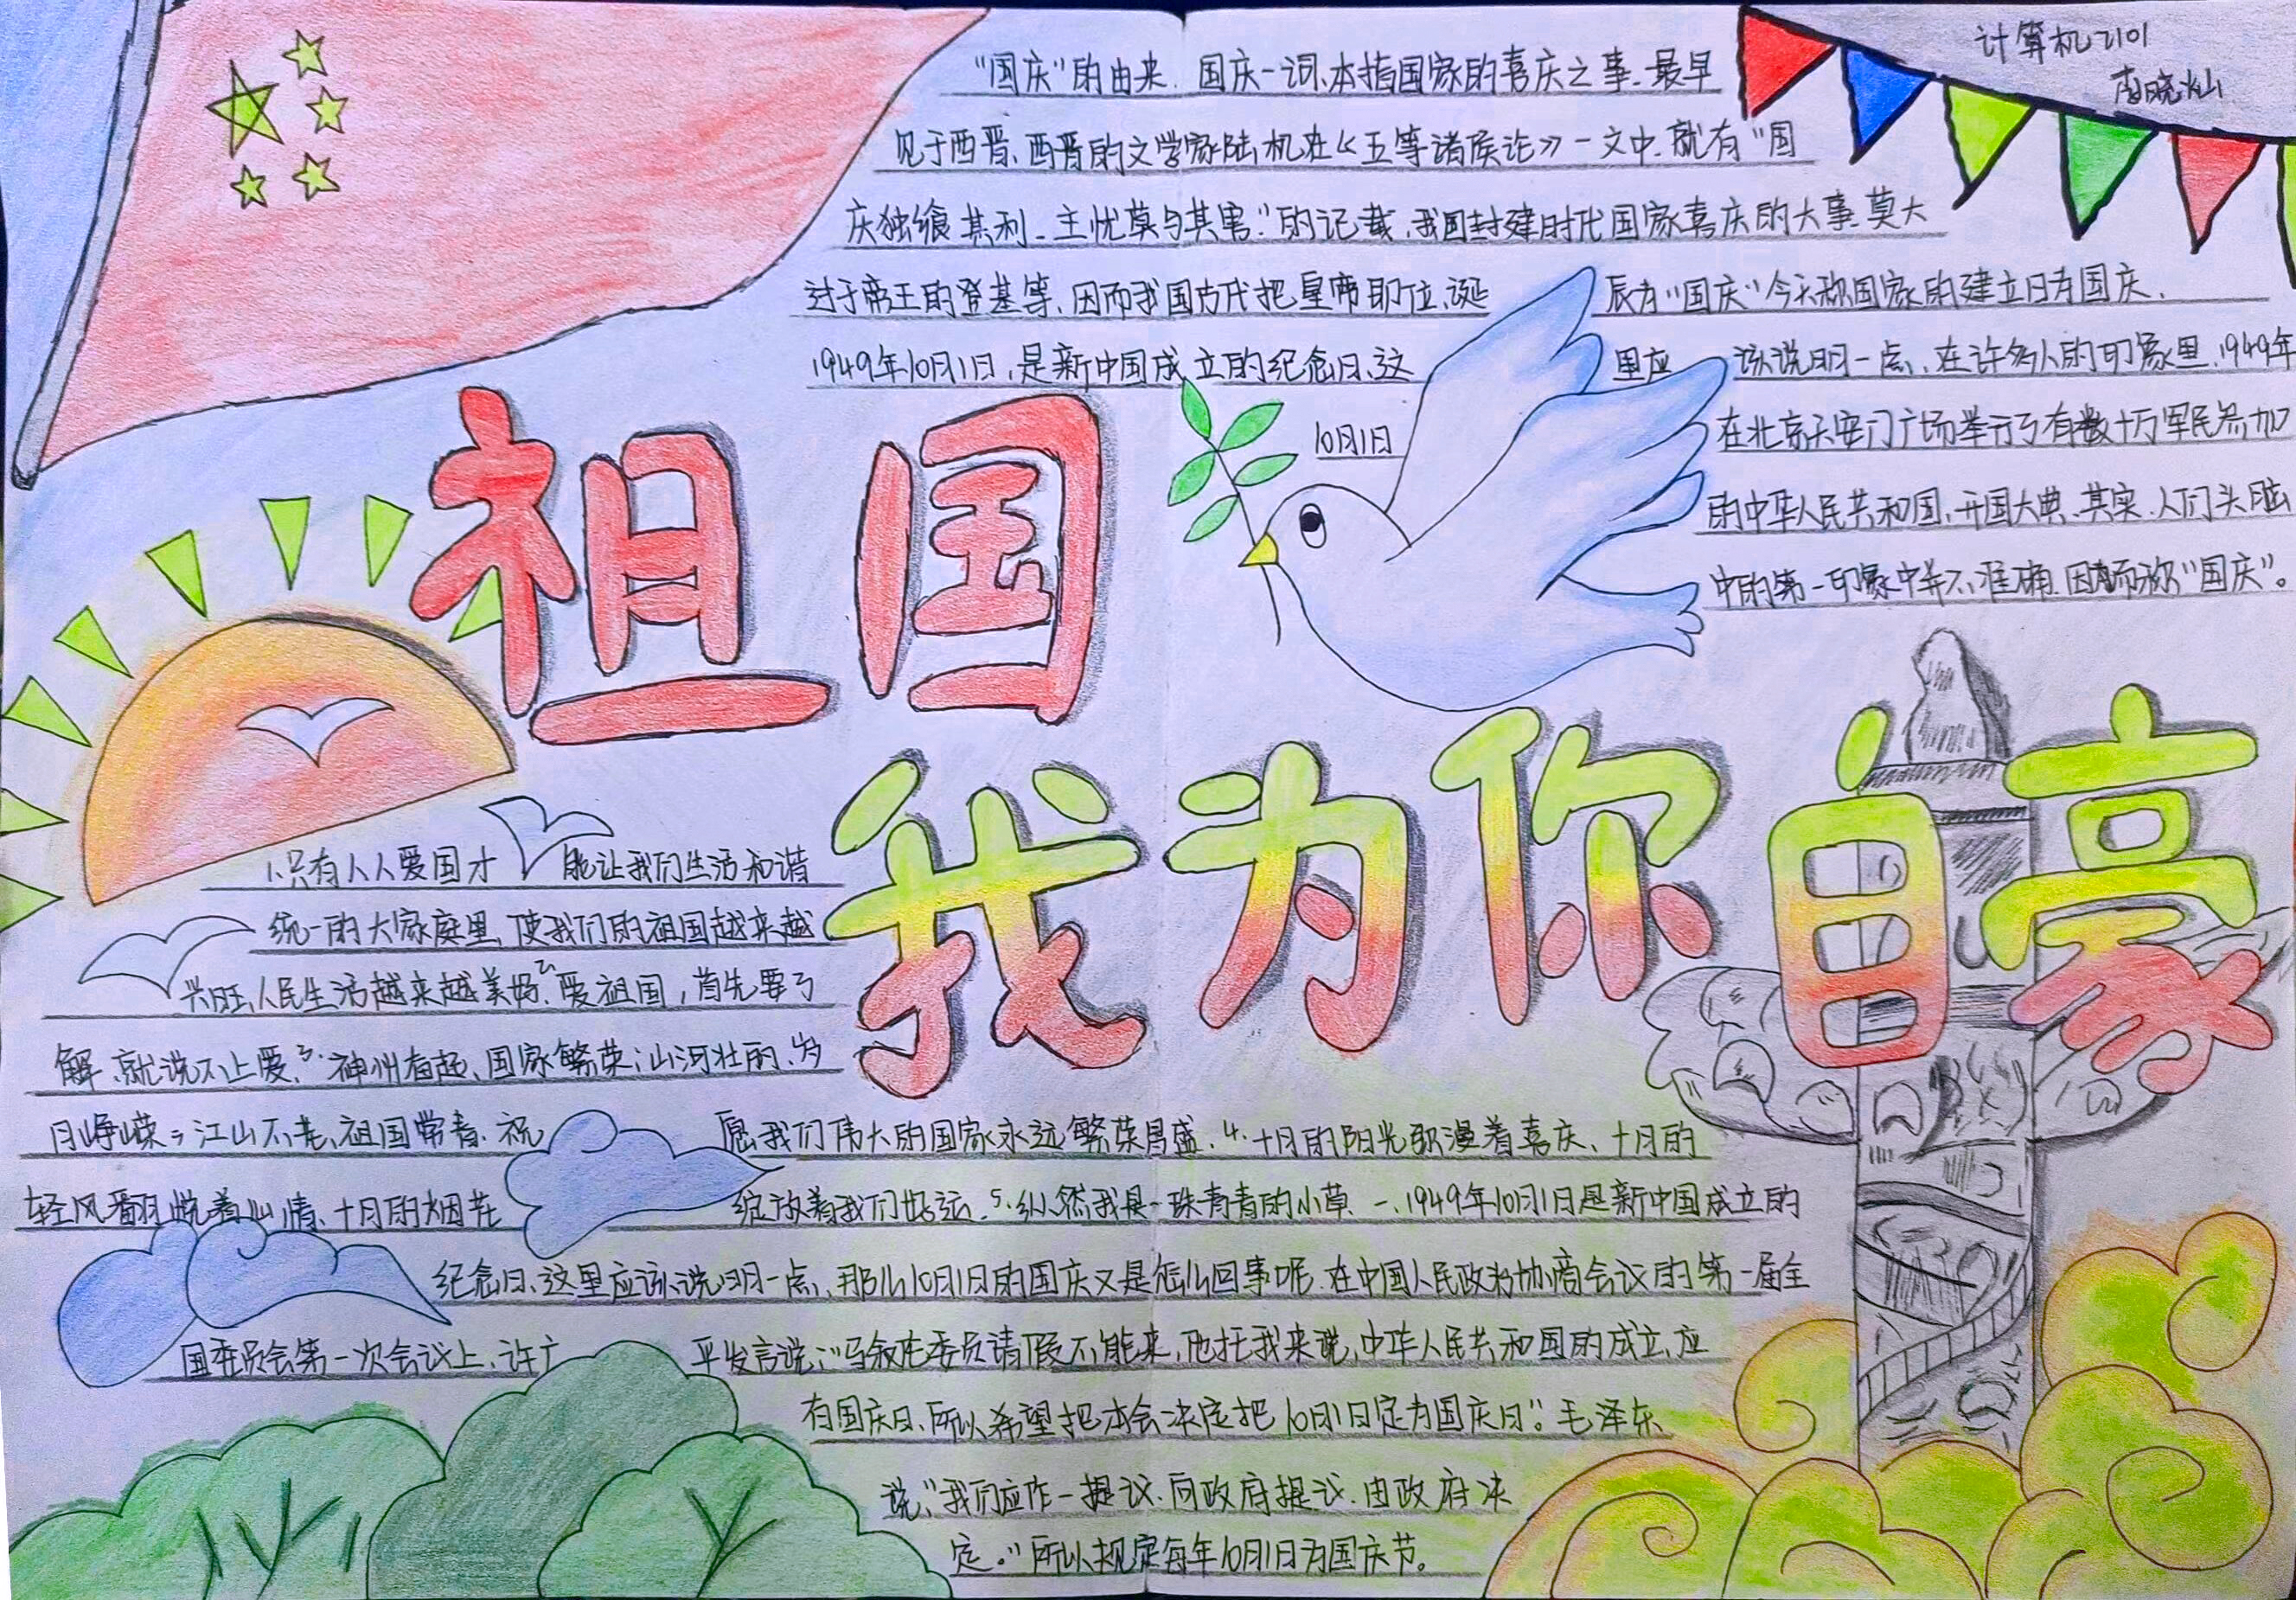 计算机2101
晓灿
"国庆"的由来. 国庆一词、本指国家的喜庆之事、最早
见于西晋、西晋的文学家陆机在《五等诸侯论》一文中、就有"国
庆独飨其利、主忧莫与其害."的记载、我国封建时代国家喜庆的大事、莫大
过于帝王的登基等、因而我国古代把皇帝即位、诞 辰为"国庆"今天称国家的建立日为国庆、
1949年10月1日,是新中国成立的纪念日、这 里应 该说明一点、在许多人的印象里、1949年
10月1日 在北京天安门广场举行了有数十万军民参加
的中华人民共和国、开国大典、其实、人们头脑
中的第一印象中并不准确、因而称"国庆"。
祖国
我为你自豪
1、只有人人爱国才 能让我们生活和谐
统一的大家庭里、使我们的祖国越来越
兴旺、人民生活越来越美好、2、爱祖国,首先要了
解、就说不上爱、3、神州有起、国家繁荣;山河壮丽、岁
月峥嵘;江山不老、祖国常春、祝 愿我们伟大的国家永远繁荣昌盛、4、十月的阳光弥漫着喜庆、十月的
轻风翻悦着心情、十月的烟花 绽放着我们好运、5、纵然我是一珠青青的小草、一、1949年10月1日是新中国成立的
纪念日、这里应该说明一点、那么10月1日的国庆又是怎么回事呢、在中国人民政协协商会议的第一届全
国委员会第一次会议上、许广 平发言说:"马叙伦委员请假不能来、他托我来说、中华人民共和国的成立、应
有国庆日、所以希望把本会决定把10月1日定为国庆日".毛泽东
说、"我们应作一提议、向政府提议、由政府决
定。"所以规定每年10月1日为国庆节。